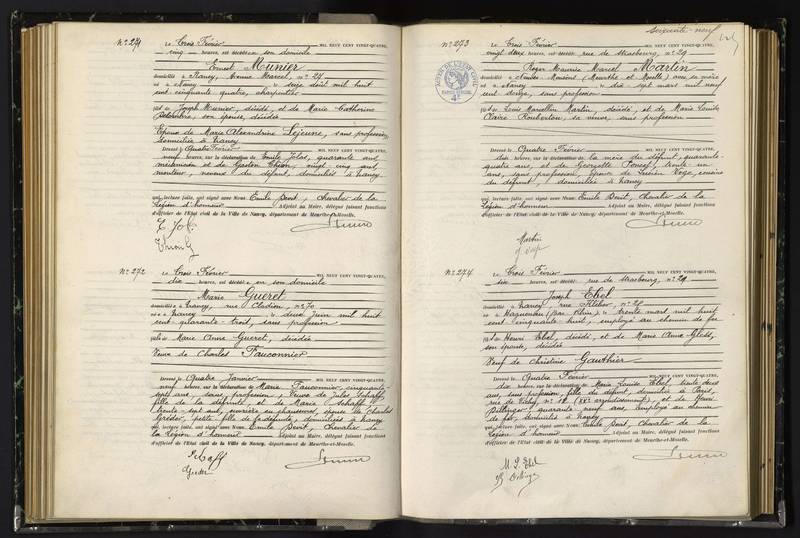 No 271
Le Trois Février MIL NEUF CENT VINGT-QUATRE,
cinq heures, est décédé en son domicile
Ernest Munier
domicilié à Nancy, Avenue Marcel, no 27
né à Nancy le seize août mil huit
cent cinquante quatre, charpentier
fils de Joseph Munier, décédé, et de Marie Catherine
son épouse, décédée
Epoux de Marie Alexandrine Lejeune, sans profession,
domiciliée à Nancy
Dressé le Quatre Février MIL NEUF CENT VINGT-QUATRE,
neuf heures, sur la déclaration de Emile Jolas, quarante ans,
mécanicien et de Gaston Thion, vingt-cinq ans,
monteur, neveux du défunt, domiciliés à Nancy
qui, lecture faite, ont signé avec Nous Emile Bovit, Chevalier de la
Légion d'honneur Adjoint au Maire, délégué faisant fonctions
d'officier de l'Etat civil de la Ville de Nancy, département de Meurthe-et-Moselle.
Thion G
No 272
Le Trois Février MIL NEUF CENT VINGT-QUATRE,
dix heures, est décédée en son domicile
Marie Gueret
domiciliée à Nancy, rue Clodion, no 70
née à Nancy le deux Juin mil huit
cent quarante trois, sans profession
fille de Marie Anne Gueret, décédée
Veuve de Charles Fauconnier
Dressé le Quatre Janvier MIL NEUF CENT VINGT-QUATRE,
neuf heures, sur la déclaration de Marie Fauconnier, cinquante
sept ans, sans profession, Veuve de Jules Schaff,
fille de la défunte et de Marie Schaff,
trente sept ans, ouvrière en chaussures, épouse de Charles
petite fille de la défunte, domiciliées à Nancy
qui, lecture faite, ont signé avec Nous Emile Bovit, Chevalier de
la Légion d'honneur Adjoint au Maire, délégué faisant fonctions
d'officier de l'Etat civil de la Ville de Nancy, département de Meurthe-et-Moselle.
Schaff
soixante neuf
No 273
Le Trois Février MIL NEUF CENT VINGT-QUATRE,
vingt deux heures, est décédé rue de Strasbourg, no 29
Roger Maurice Marcel Martin
domicilié à (Meurthe et Moselle) avec sa mère,
né à Nancy le dix sept mars mil neuf
cent douze, sans profession
fils de Louis Marcellin Martin, décédé, et de Marie Louise
Claire sa veuve, sans profession
Dressé le Quatre Février MIL NEUF CENT VINGT-QUATRE,
dix heures, sur la déclaration de la mère du défunt, quarante
quatre ans, et de Georgette trente un
ans, sans profession, épouse de Lucien cousine
du défunt, domiciliée à Nancy
qui, lecture faite, ont signé avec Nous Emile Bovit, Chevalier de la
Légion d'honneur Adjoint au Maire, délégué faisant fonctions
d'officier de l'Etat civil de la Ville de Nancy, département de Meurthe-et-Moselle.
Martin
No 274
Le Trois Février MIL NEUF CENT VINGT-QUATRE,
six heures, est décédé rue de Strasbourg, no 29
Joseph Ebel
domicilié à Nancy rue Kléber, no 29
né à Haguenau (Bas Rhin) le trente mars mil huit
cent cinquante huit, employé au chemin de fer
fils de Henri Ebel, décédé, et de Marie Anne Gless,
son épouse, décédée
Veuf de Christine Gauthier
Dressé le Quatre Février MIL NEUF CENT VINGT-QUATRE,
dix heures, sur la déclaration de Marie Louise Ebel, trente deux
ans, sans profession, fille du défunt, domiciliée à Paris,
rue de Vichy, no 18 (XVe arrondissement), et de Henri
quarante neuf ans, employé au chemin
de fer, domicilié à Nancy
qui, lecture faite, ont signé avec Nous Emile Bovit, Chevalier de la
Légion d'honneur Adjoint au Maire, délégué faisant fonctions
d'officier de l'Etat civil de la Ville de Nancy, département de Meurthe-et-Moselle.
M. L. Ebel